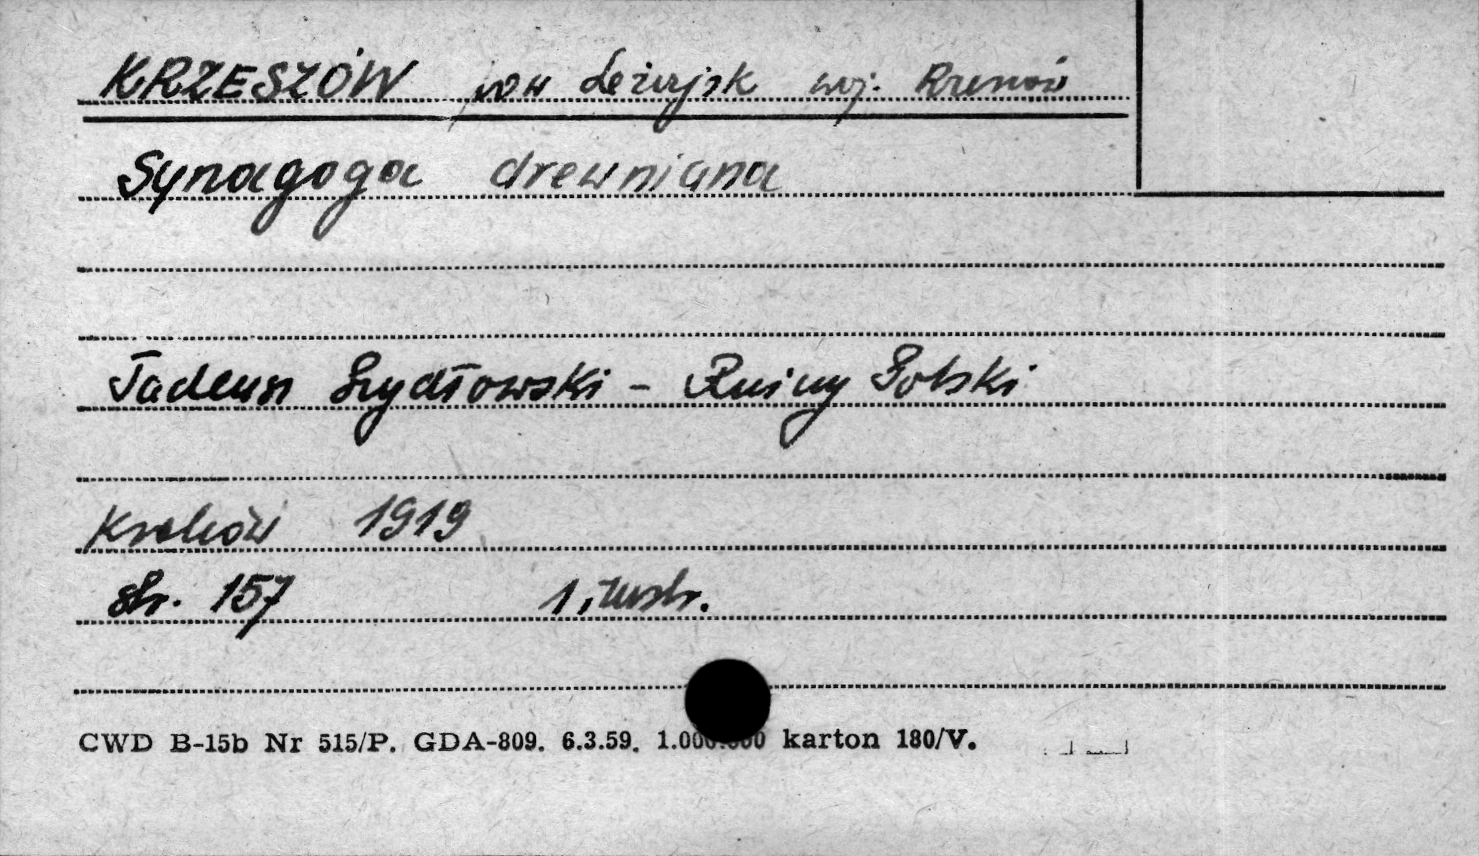 KRZESZÓW pow Leżajsk woj. Rzeszów
Synagoga drewniana
Tadeusz Szydłowski - Ruiny Polski
Kraków 1919
str. 157 1, ilustr.
CWD B-15b Nr 515/P. GDA-809. 6.3.59. 1.000.000 karton 180/V.